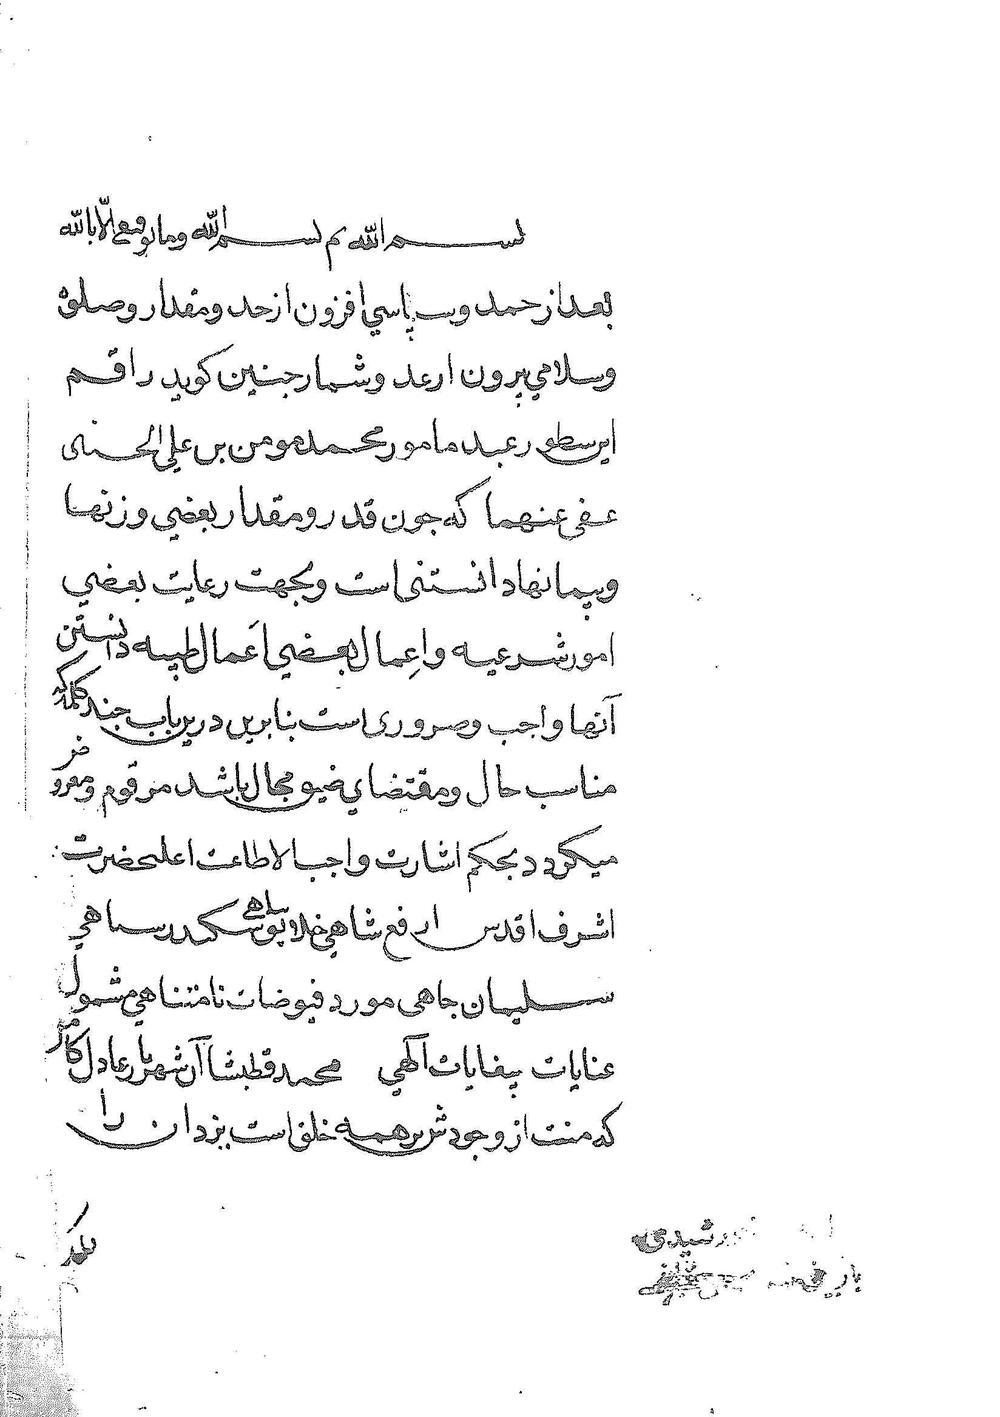 بسم الله ثم بسم الله وما توفیقی الا بالله
بعد از حمد و سپاسي افزون از حد و مقدار و صلوة
و سلامي بيرون از عد و شمار جنين كويد راقم
اين سطور عبد مامور محمد مومن بن علي الحسنى
عفى عنهما كه جون قدر و مقدار بعضي وزنها
و پيمانها دانستنى است و بجهت رعايت بعضي
امور شرعيه و اِعمال بعضي اَعمال طبيه دانستن
آنها واجب و ضرورى است بنابرين درين باب جند كلمه كه
مناسب حال و مقتضاي ضيق مجال باشد مرقوم و معروض
ميكردد بحكم اشارت واجب الاطاعت اعلىحضرت
اشرف اقدس ارفع شاهي خلايق پناهي سكندر سپاهي
سليمان جاهى مورد فيوضات نامتناهي مشمول
عنايات بيغايات آلهي محمد قطبشا آن شهريار عادل كامل
كه منت از وجودش بر همه خلق است يزدان را